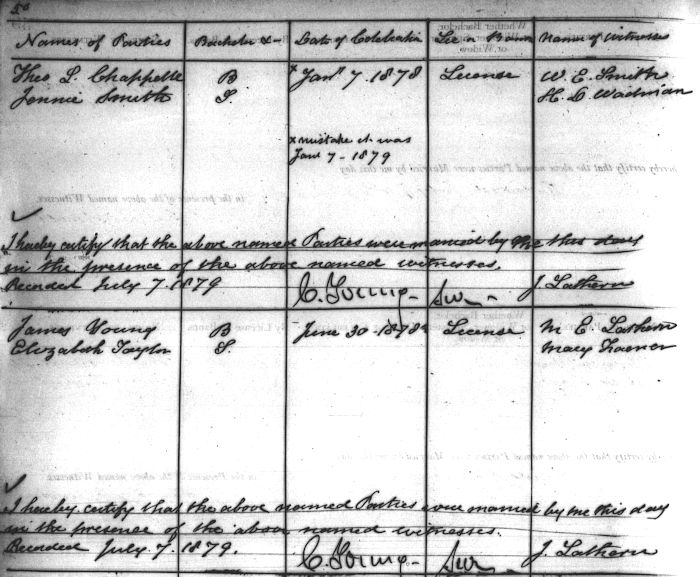 50
Names of Parties Bachelor &c Date of Celebratin Lic or Banns Name of witnesses
Theo L. Chappelle B x Jany 7. 1878 License W. E. Smith
Jennie Smith S. H. D. Wadman
x mistake it was
Jany 7 - 1879
I hereby certify that the above named Parties were married by me this day
in the presence of the above named witnesses.
Recorded July 7. 1879 C. Young - J. Lathern
James Young B June 30 1878 License M E. Lathern
Elizabeth Taylor S. Mary
I hereby certify that the above named Parties were married by me this day
in the presence of the above named witnesses.
Recorded July 7. 1879. C. Young - J. Lathern